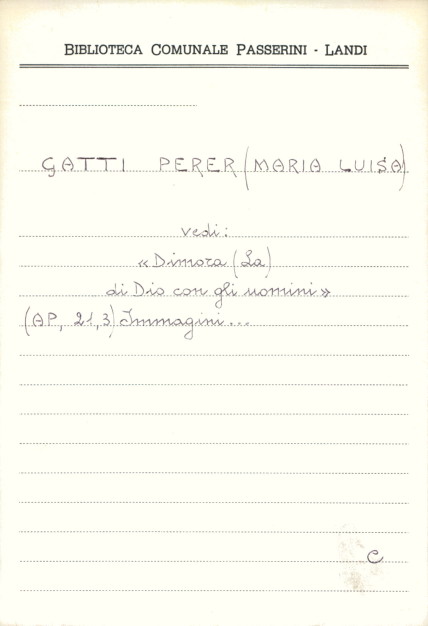 BIBLIOTECA COMUNALE PASSERINI - LANDI
GATTI PERER (MARIA LUISA)
vedi:
«Dimora (La)
di Dio con gli uomini»
(AP, 21,3) Immagini...
C